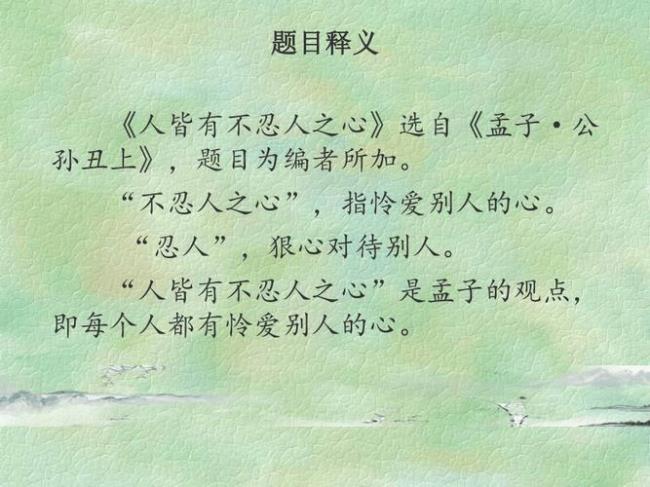 题目释义
《人皆有不忍人之心》选自《孟子·公
孙丑上》，题目为编者所加。
“不忍人之心”，指怜爱别人的心。
“忍人”，狠心对待别人。
“人皆有不忍人之心”是孟子的观点，
即每个人都有怜爱别人的心。